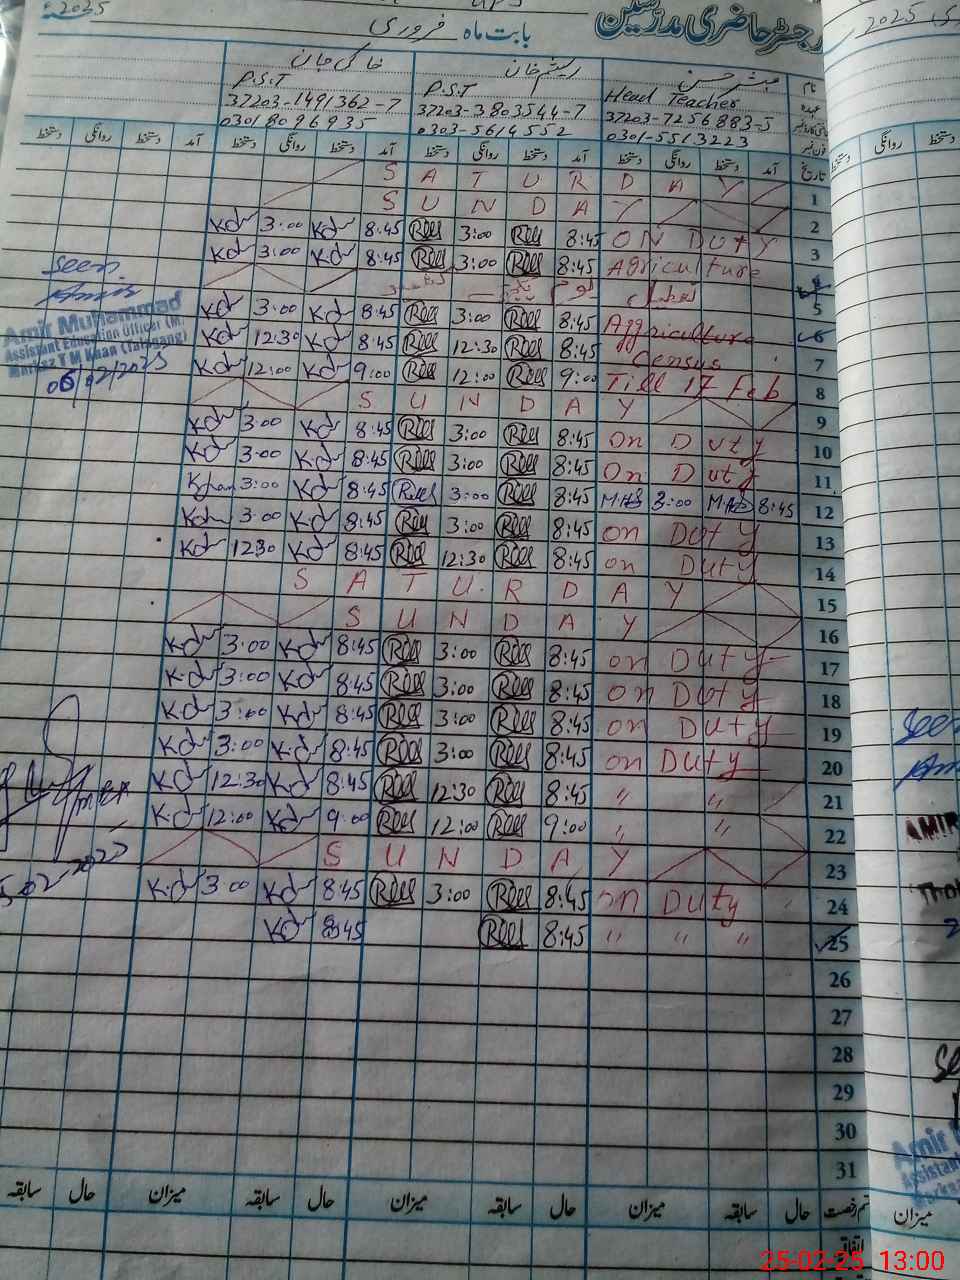 2025ء
رجسٹر حاضری مدرسین
بابت ماہ فروری
2025
نام مبشر حسن ریستم خان خاکی جان
عہدہ Head Teacher P.S.T P.S.T
37203-7256883-5 37203-3803544-7 37203-1491362-7
فون نمبر 0301-5513223 0303-5614552 03018096935
تاریخ آمد دستخط روانگی دستخط آمد دستخط روانگی دستخط آمد دستخط روانگی دستخط آمد دستخط روانگی دستخط
S A T U R D A Y 1
S U N D A Y 2
Kd 3:00 Kd 8:45 Rees 3:00 Rees 8:45 ON Duty 3
Kd 3:00 Kd 8:45 Rees 3:00 Rees 8:45 Agriculture 4
تعطیل 5
Kd 3:00 Kd 8:45 Rees 3:00 Rees 8:45 Aggriculture 6
Kd 12:30 Kd 8:45 Rees 12:30 Rees 8:45 Census 7
Kd 12:00 Kd 9:00 Rees 12:00 Rees 9:00 Till 17 Feb 8
S U N D A Y 9
Kd 3:00 Kd 8:45 Rees 3:00 Rees 8:45 On Duty 10
Kd 3:00 Kd 8:45 Rees 3:00 Rees 8:45 On Duty 11
3:00 Kd 8:45 Rees 3:00 Rees 8:45 3:00 8:45 12
Kd 3:00 Kd 8:45 Rees 3:00 Rees 8:45 on Duty 13
Kd 12:30 Kd 8:45 Rees 12:30 Rees 8:45 on Duty 14
S A T U R D A Y 15
S U N D A Y 16
Kd 3:00 Kd 8:45 Rees 3:00 Rees 8:45 on Duty 17
Kd 3:00 Kd 8:45 Rees 3:00 Rees 8:45 on Duty 18
Kd 3:00 Kd 8:45 Rees 3:00 Rees 8:45 on Duty 19
Kd 3:00 Kd 8:45 Rees 3:00 Rees 8:45 on Duty 20
Kd 12:30 Kd 8:45 Rees 12:30 Rees 8:45 " " 21
Kd 12:00 Kd 9:00 Rees 12:00 Rees 9:00 " " 22
S U N D A Y 23
Kd 3:00 Kd 8:45 Rees 3:00 Rees 8:45 on Duty 24
Kd 8:45 Rees 8:45 " " " 25
26
27
28
29
30
31
حال سابقہ میزان حال سابقہ میزان حال سابقہ میزان حال سابقہ
میزان
Seen
Amir
Amir Muhammad
Assistant Education Officer (M)
Markaz T M Khan (Talagang)
06/02/2025
Seen
AMIR
Amir
Assistant
Markaz
25-02-25 13:00